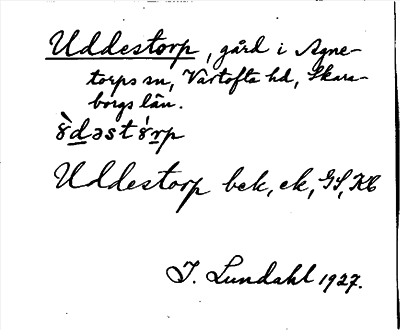 Uddestorp, gård i Agne-
torps sn, Vartofta hd, Skara-
borgs län.
8̀d̲əst8́r̲p
Uddestorp bek, ek, GS, KB
I. Lundahl 1927.